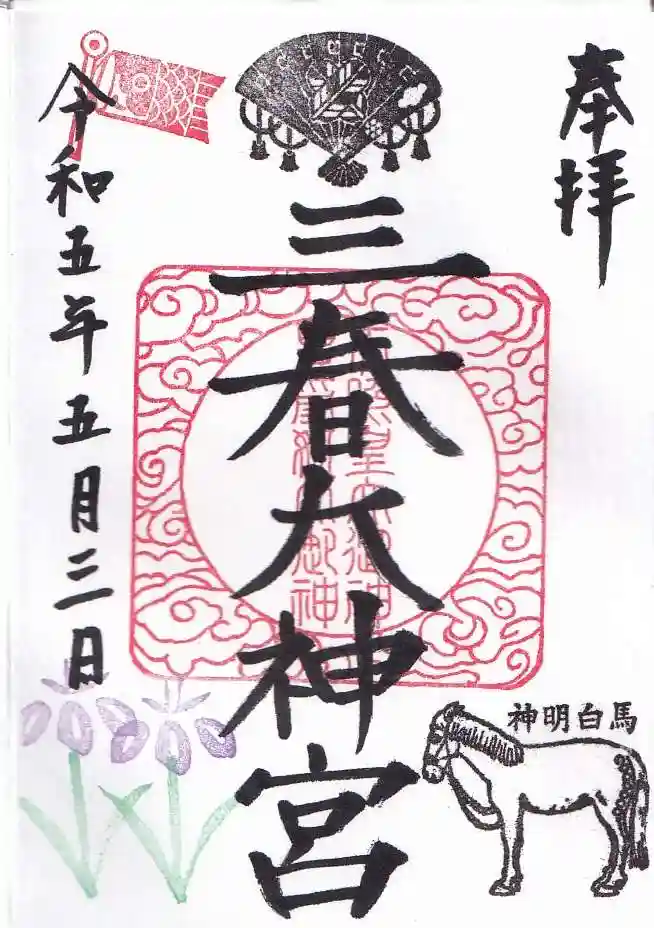 奉拝
三春大神宮
令和五年五月三日
神明白馬